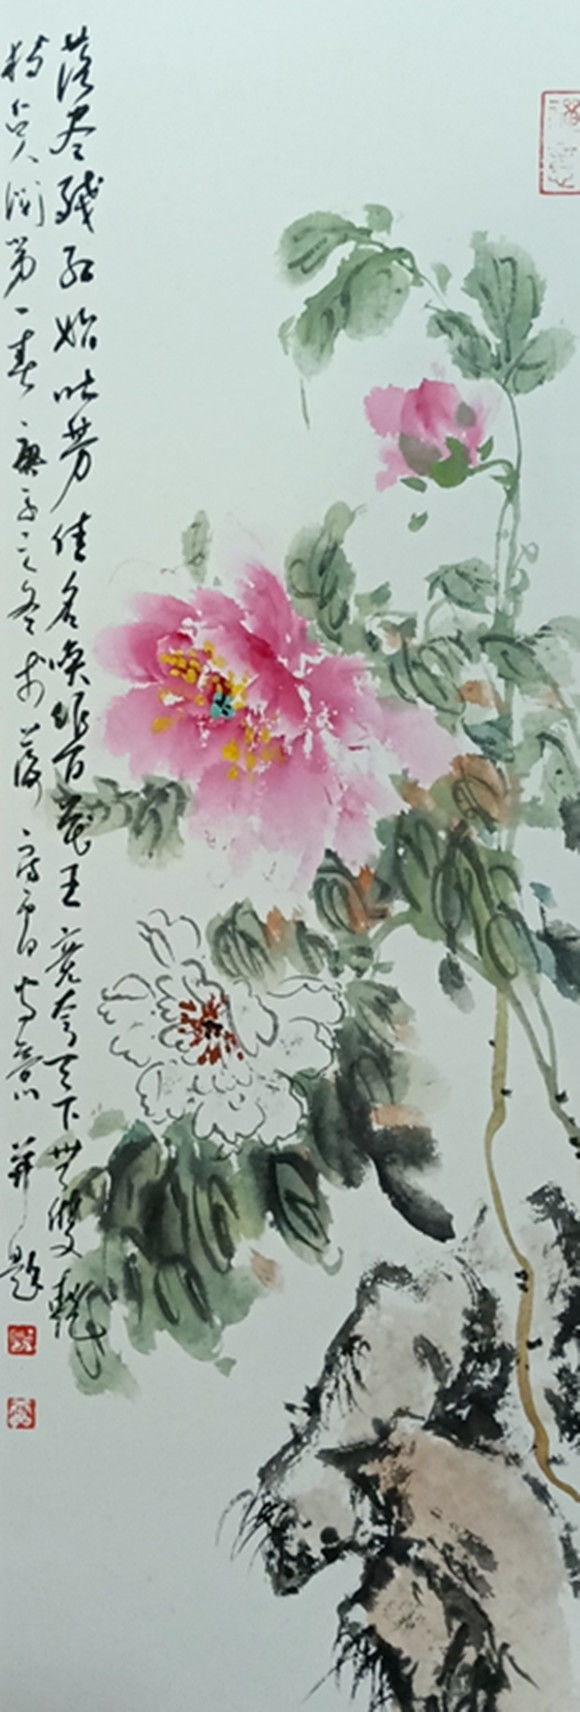 落尽残红始吐芳佳名唤作百花王竞夸天下无双艳
独占人间第一春庚子之冬于
写意并题